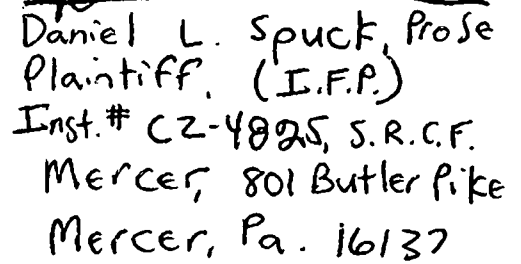 Daniel L. Spuck, Pro Se
Plaintiff. (I.F.P.)
Inst.# CZ-4825, S.R.C.F.
Mercer, 801 Butler Pike
Mercer, Pa. 16137